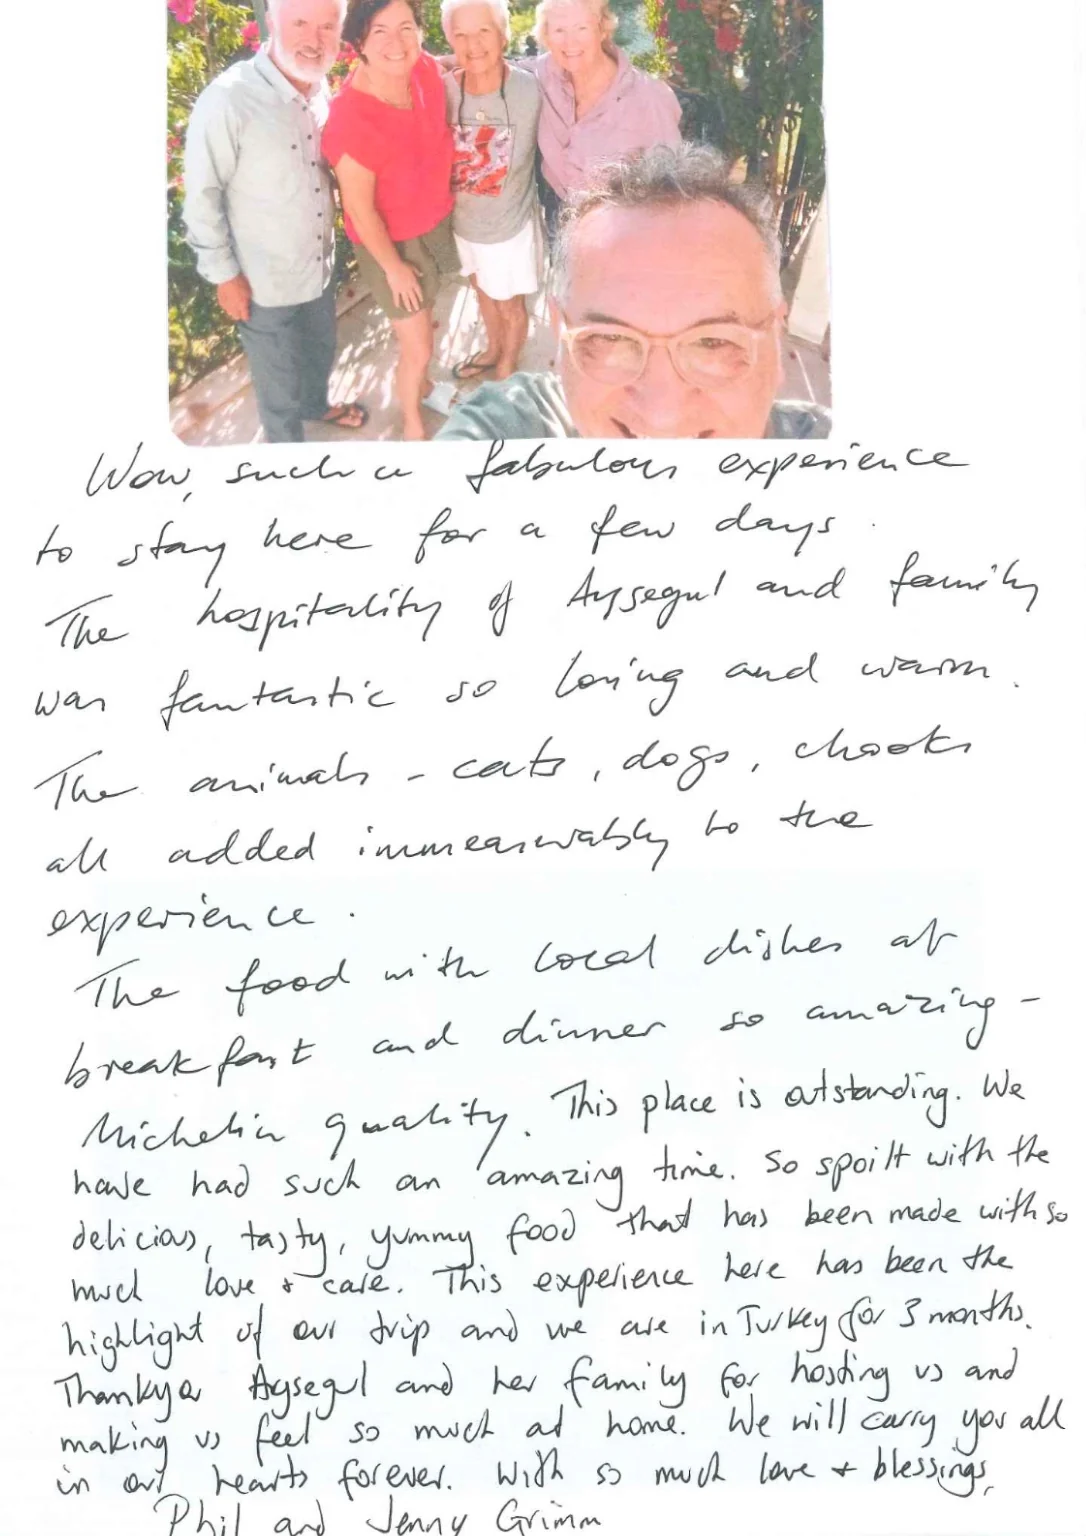 Wow, such a fabulous experience
to stay here for a few days.
The hospitality of Aysegul and family
was fantastic so loving and warm.
The animals - cats, dogs, chooks
all added immeasurably to the
experience.
The food with local dishes at
breakfast and dinner so amazing -
Michelin quality. This place is outstanding. We
have had such an amazing time. So spoilt with the
delicious, tasty, yummy food that has been made with so
much love + care. This experience here has been the
highlight of our trip and we are in Turkey for 3 months.
Thankyou Aysegul and her family for hosting us and
making us feel so much at home. We will carry you all
in our hearts forever. With so much love + blessings,
Phil and Jenny Grimm